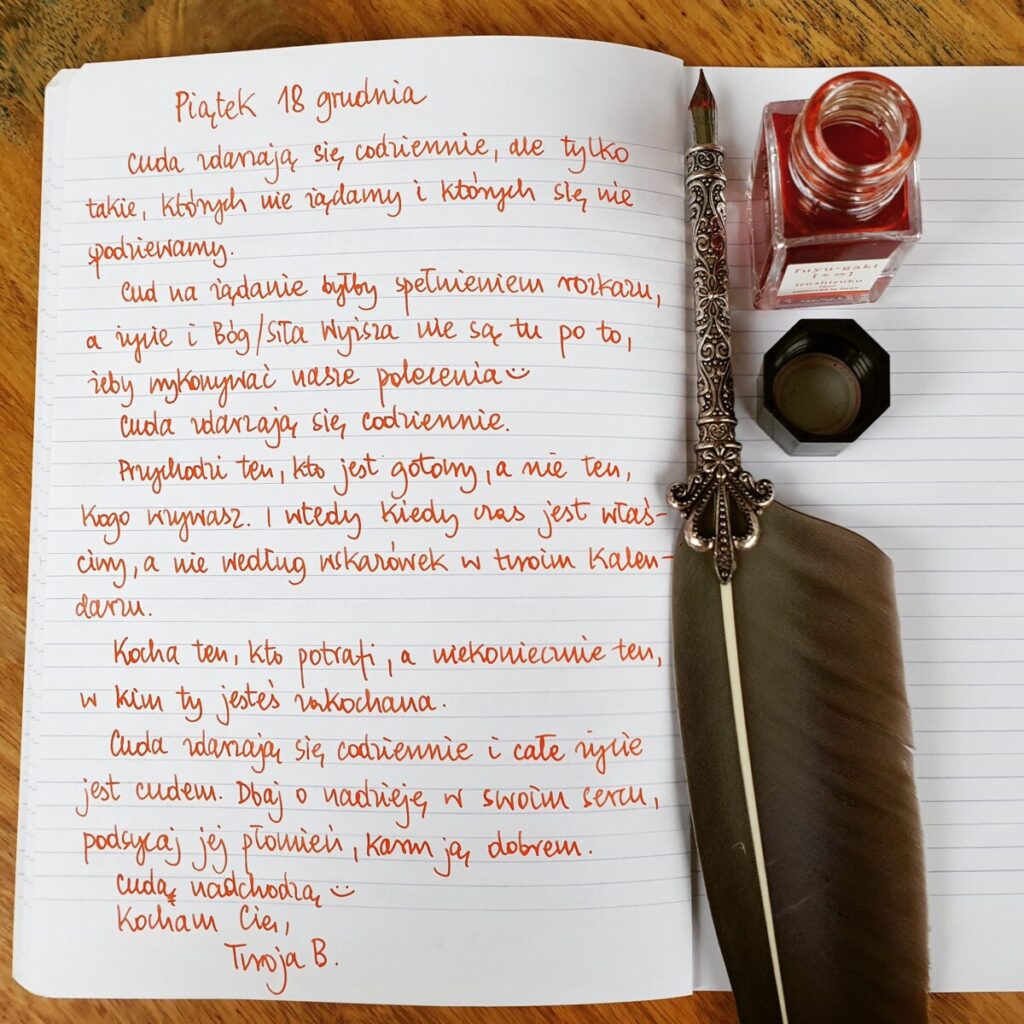 Piątek 18 grudnia
Cuda zdarzają się codziennie, ale tylko
takie, których nie żądamy i których się nie
spodziewamy.
Cud na żądanie byłby spełnieniem rozkazu,
a życie i Bóg/Siła Wyższa nie są tu po to,
żeby wykonywać nasze polecenia
Cuda zdarzają się codziennie.
Przychodzi ten, kto jest gotowy, a nie ten,
kogo wzywasz. I wtedy kiedy czas jest właś-
ciwy, a nie według wskazówek w twoim kalen-
darzu.
Kocha ten, kto potrafi, a niekoniecznie ten,
w kim ty jesteś zakochana.
Cuda zdarzają się codziennie i całe życie
jest cudem. Dbaj o nadzieję w swoim sercu,
podsycaj jej płomień, karm ją dobrem.
Cuda nadchodzą
Kocham Cię,
Twoja B.
fuyu-gaki
[冬柿]
iroshizuku